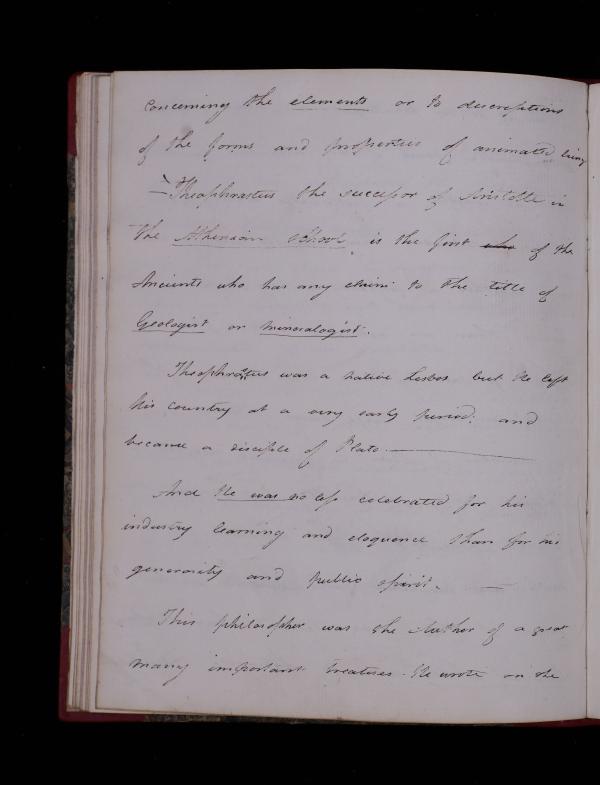 concerning the elements or to descriptions
of the forms and properties of animated living
– Theophrastus the successor of Aristotle in
the Athenian School is the first who of the
Ancients who has any claim to the title of
Geologist or mineralogist.
Theophrastus was a native Lesbos but He left
his country at a very early period; and
became a disciple of Plato. ——
And He was no less celebrated for his
industry learning and eloquence than for his
generosity and public spirit. —
This philosopher was the Author of a great
many important treatises. He wrote on the